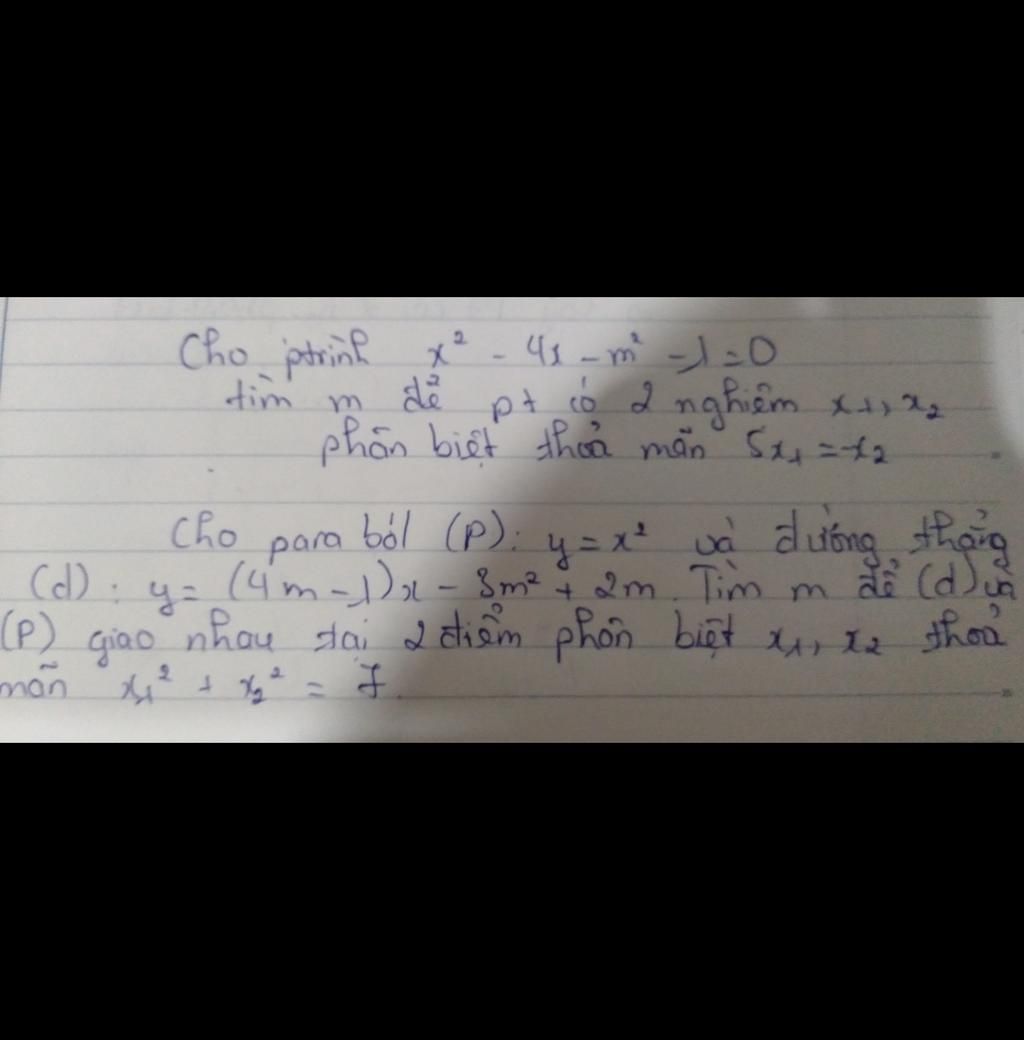 Cho ptrình x² - 4x - m² - 1 = 0
tìm m để pt có 2 nghiệm x₁, x₂
phân biệt thoả mãn 5x₁ = -x₂
Cho para ból (P): y = x² và đường thẳng
(d): y = (4m - 1)x - 3m² + 2m. Tìm m để (d) và
(P) giao nhau tại 2 điểm phân biệt x₁, x₂ thoả
mãn x₁² + x₂² = 7.